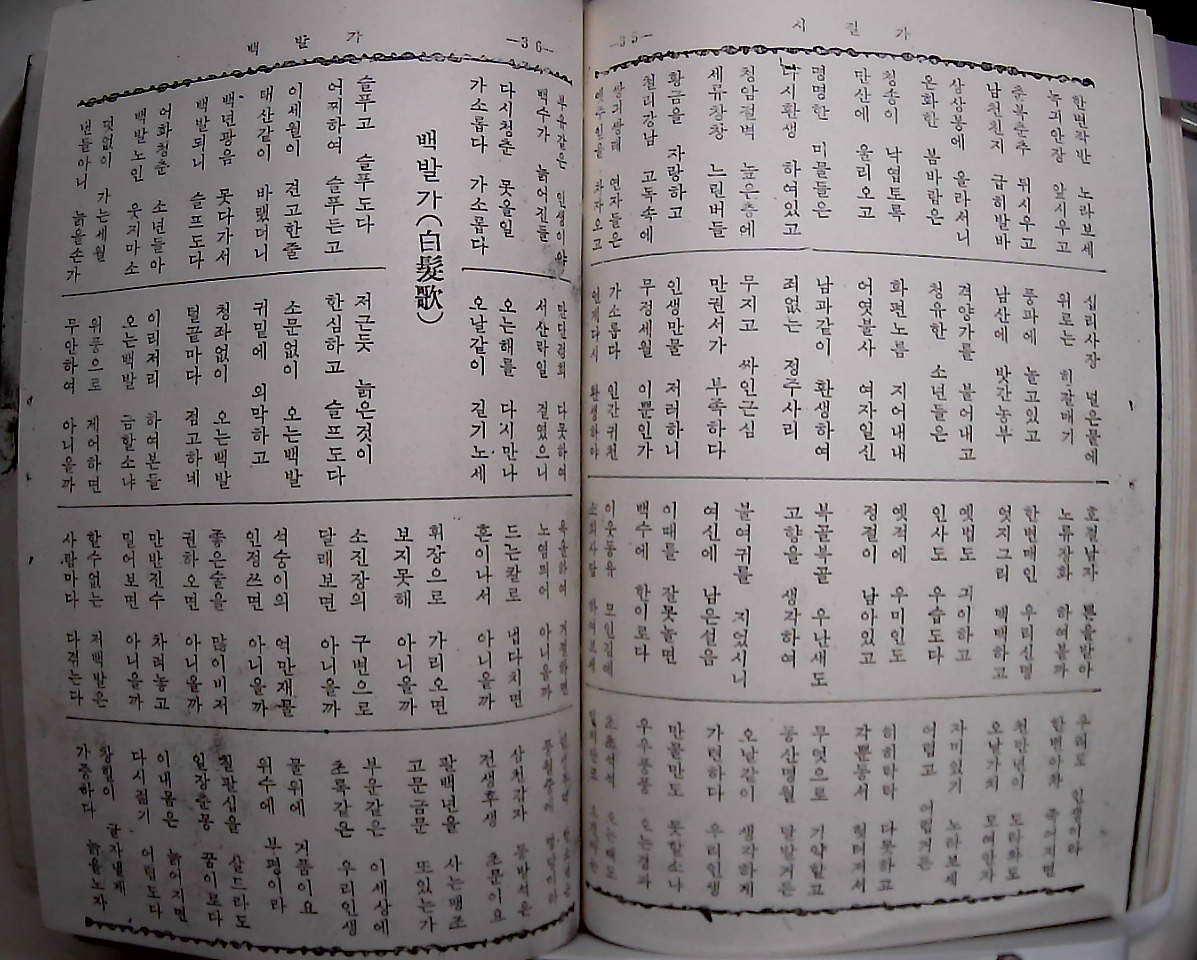 —35—
한번작반 노라보세
춘복춘추 뒤시우고
남천친지 급히발바
상상봉에 올라서니
온화한 봄바람은
청송이 낙엽토록
만산에 울리오고
명명한 미물들은
다시환생 하여있고
청암절벽 높은층에
세류창창 느린버들
황금을 자랑하고
천리강남 고독속에
연자들은
십리사장 넓은물에
위로는 히갈매기
풍파에 놀고있고
남산에 밧간농부
격양가를 불어내고
청유한 소년들은
화편노름 지어내내
어엿불사 여자일신
남과같이 환생하여
죄없는 정주사리
무지고 싸인근심
만권서가 부족하다
인생만물 저러하니
무정세월 이뿐인가
가소롭다 인간귀천
언제다시 환생하야
호걸남자
노류장화 하여볼까
한번매인 우리신명
엇지그리 맥맥하고
옛법도 긔이하고
인사도 우습도다
옛적에 우미인도
정절이 남아있고
북골북골 우난새도
고향을 생각하여
불여귀를 지었시니
여신에 남은설음
이때를 잘못놀면
백수에 한이로다
이웃동유 모인김에
하여보세
우리도 인생이라
한번아차 죽어지면
천만년이 도라와도
오날가치 모여안자
자미있기 노라보세
어렵고 어렵거든
다못하고
각분동서
무엇으로 기약할고
동산명월
오날같이 생각하게
가련하다 우리인생
만물만도 못할소냐
백발가
—36—
부유같은 인생이야
백수가 늙어진들
다시청춘 못올일
가소롭다 가소롭다
만단정회 다못하여
서산락일 걸였으니
오는해를 다시만나
오날같이 길기노세
백발가(白髮歌)
슬푸고 슬푸도다
어찌하여 슬푸든고
이세월이 견고한줄
태산같이 바랬더니
백년광음 못다가서
백발되니 슬프도다
어화청춘 소년들아
백발노인 웃지마소
덧없이 가는세월
낸들아니 늙을손가
저근듯 늙은것이
한심하고 슬프도다
소문없이 오는백발
귀밑에 의막하고
청좌없이 오는백발
털끝마다 점고하네
이리저리 하여본들
오는백발 금할소냐
위풍으로 제어하면
무안하여 아니올까
노염되어 아니올까
드는칼로 냅다치면
혼이나서 아니올까
휘장으로 가리오면
보지못해 아니올까
소진장의 구변으로
달래보면 아니올까
석숭이의 억만재물
인정쓰면 아니올까
좋은술을 많이비저
권하오면 아니올까
만반진수 차려놓고
밀어보면 아니올까
할수없는 저백발은
사람마다 다겪는다
삼천갑자 동방석은
전생후생 초문이요
팔백년을 사는팽조
고문금문 또있는가
부운같은 이세상에
초로같은 우리인생
물위에 거품이요
위수에 부평이라
칠팔십을 산드라도
일장춘몽 꿈이로다
이내몸은 늙어지면
다시젊기 어렵도다